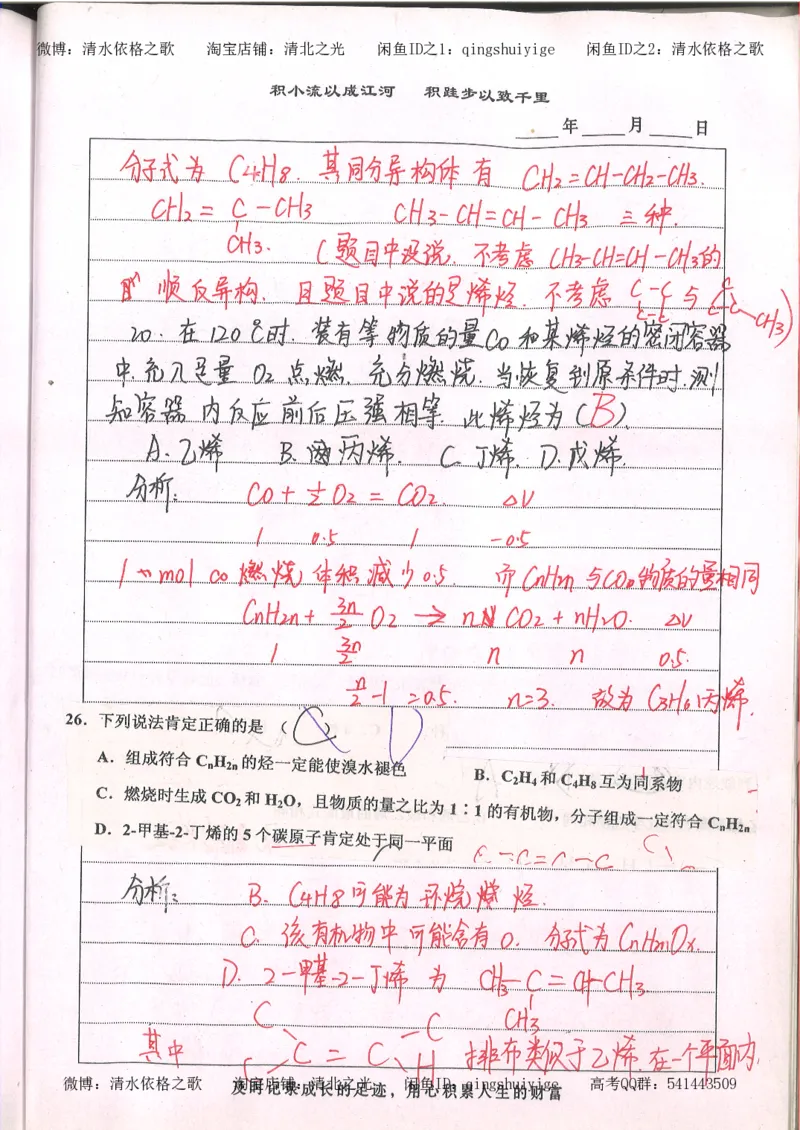 微博：清水依格之歌 淘宝店铺：清北之光 闲鱼ID之1：qingshuiyige 闲鱼ID之2：清水依格之歌
积小流以成江河 积跬步以致千里
年 月 日
分子式为 C4H8. 其同分异构体有 CH2=CH-CH2-CH3.
CH2=C-CH3 CH3-CH=CH-CH3 三种.
CH3. (题目中没说, 不考虑 CH3-CH=CH-CH3的
顺反异构. 且题目中说的是烯烃. 不考虑 C-C 与 C
C-C C-C CH3)
20. 在120℃时. 装有等物质的量CO和某烯烃的密闭容器
中. 充入足量 O2 点燃. 充分燃烧. 当恢复到原条件时. 测
知容器内反应前后压强相等. 此烯烃为(B).
A. 乙烯 B. 丙烯. C. 丁烯. D. 戊烯.
分析: CO + 1/2 O2 = CO2. ΔV
1 0.5 1 -0.5
1 mol CO 燃烧, 体积减少0.5. 而CnH2n与CO物质的量相同
CnH2n + 3n/2 O2 → n CO2 + nH2O. ΔV
1 3n/2 n n 0.5.
n/2 - 1 = 0.5. n=3. 故为 C3H6 丙烯.
26．下列说法肯定正确的是 （ C ） D
A．组成符合 CnH2n 的烃一定能使溴水褪色
B．C2H4 和 C4H8 互为同系物
C．燃烧时生成 CO2 和 H2O，且物质的量之比为 1∶1 的有机物，分子组成一定符合 CnH2n
D．2-甲基-2-丁烯的 5 个碳原子肯定处于同一平面
C-C=C-C
分析: B. C4H8可能为环烷烃.
C. 该有机物中可能含有O. 分子式为CnH2nOx.
D. 2-甲基-2-丁烯 为 CH3-C=CH-CH3
CH3
C C
其中 C=C 排布类似于乙烯. 在一个平面内.
C H
微博：清水依格之歌 淘宝店铺：清北之光 闲鱼ID：qingshuiyige 高考QQ群：541443509
及时记录成长的足迹，用心积累人生的财富